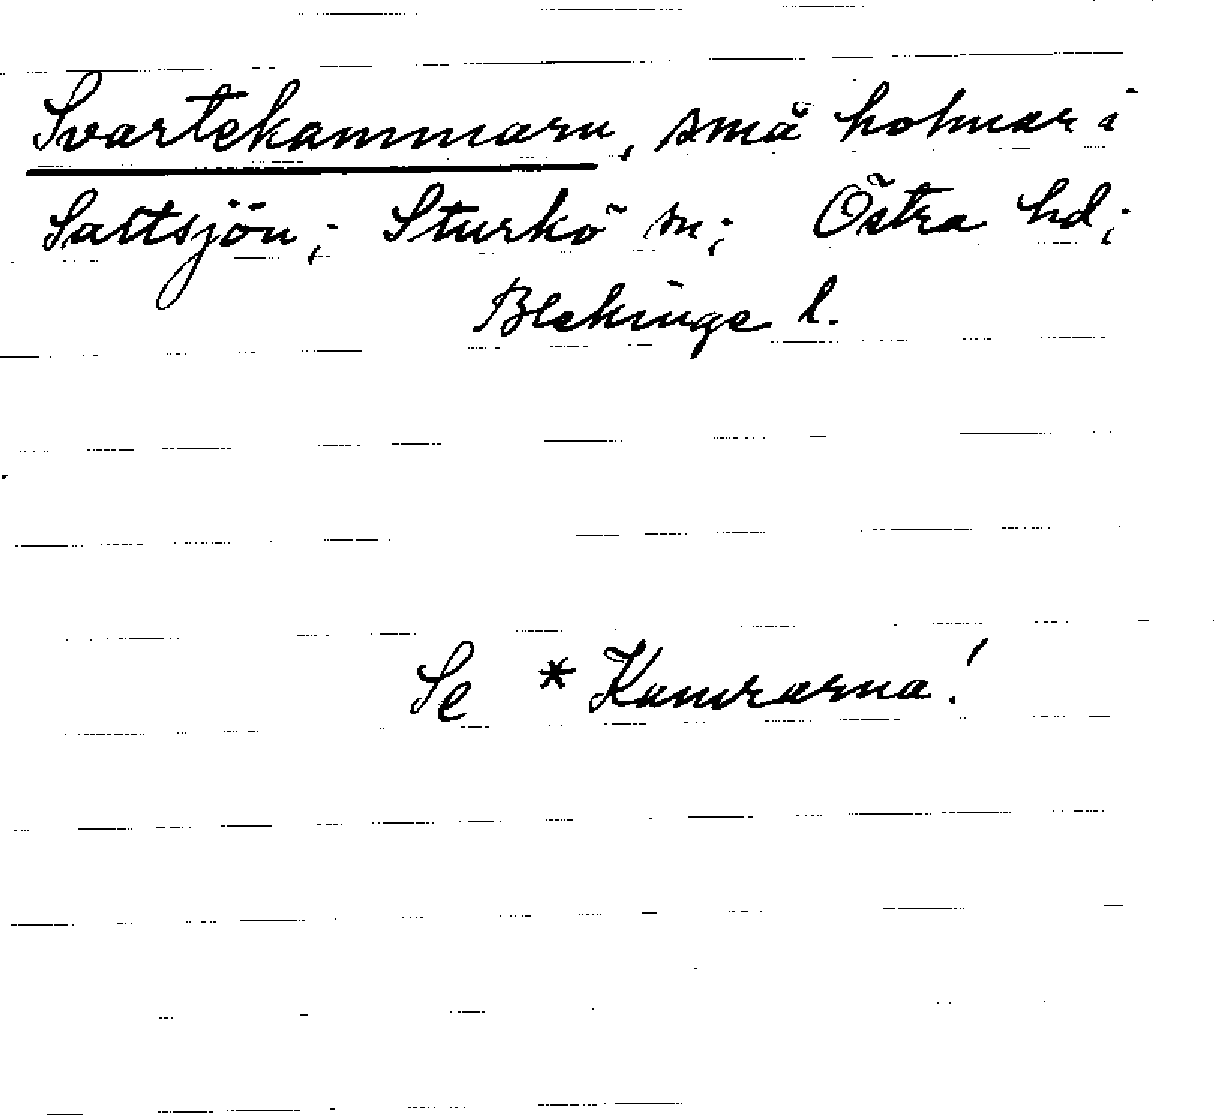 Svartekammarn, små holmar i
Saltsjön; Sturkö sn; Östra hd;
Blekinge l.
Se * Kamrarna!